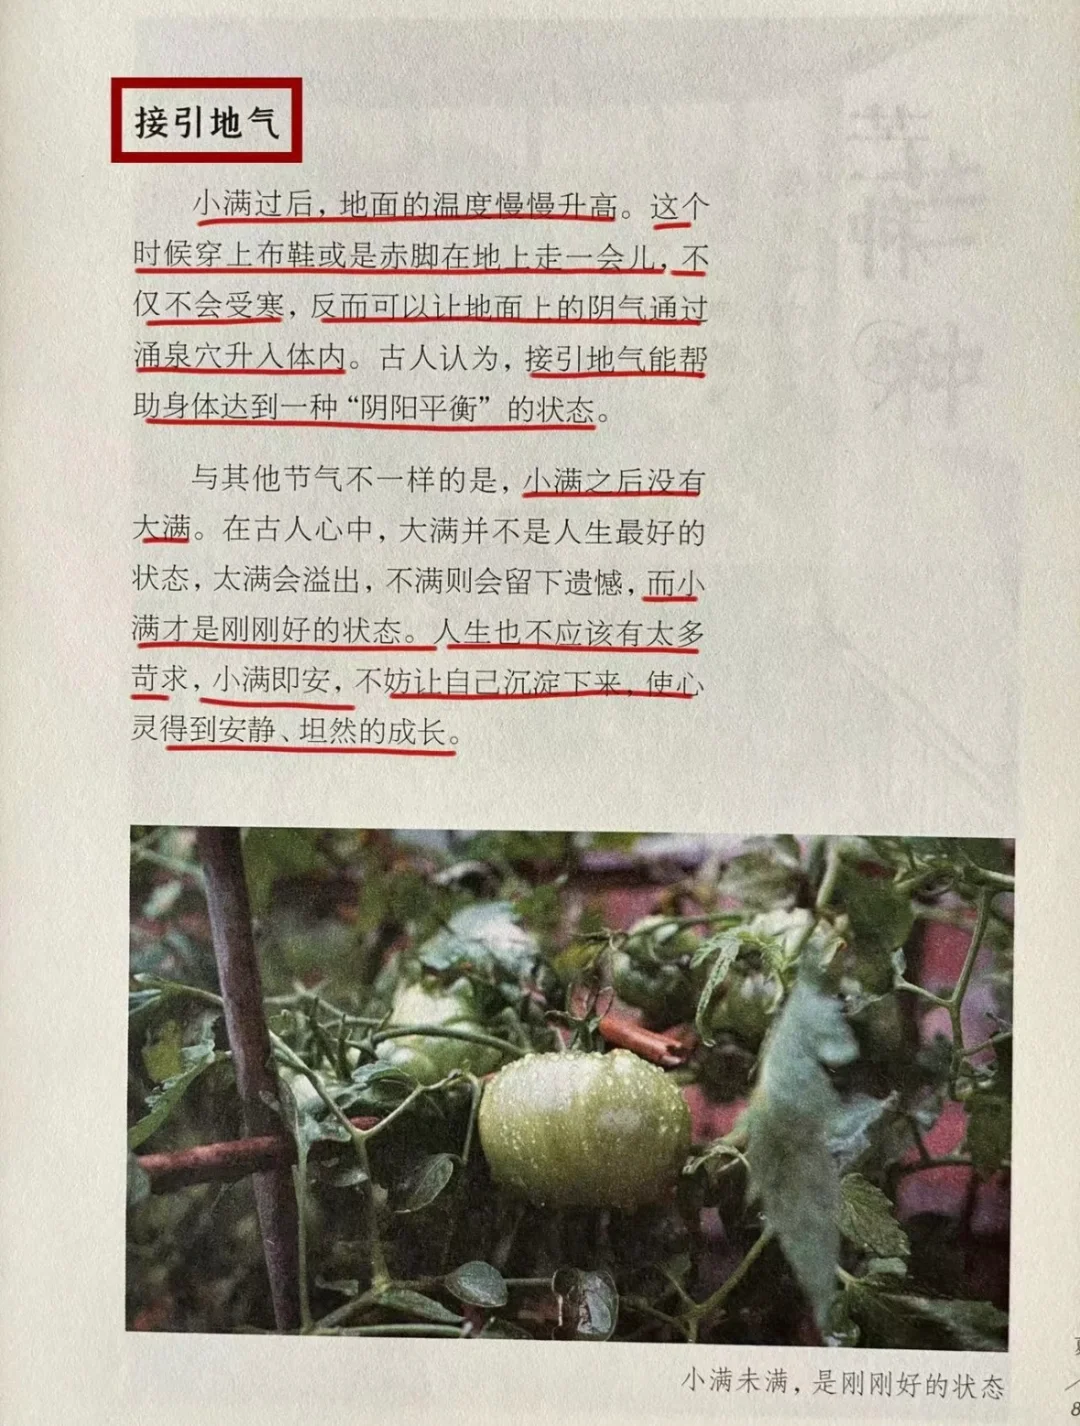 接引地气
小满过后，地面的温度慢慢升高。这个
时候穿上布鞋或是赤脚在地上走一会儿，不
仅不会受寒，反而可以让地面上的阴气通过
涌泉穴升入体内。古人认为，接引地气能帮
助身体达到一种“阴阳平衡”的状态。
与其他节气不一样的是，小满之后没有
大满。在古人心中，大满并不是人生最好的
状态，太满会溢出，不满则会留下遗憾，而小
满才是刚刚好的状态。人生也不应该有太多
苛求，小满即安，不妨让自己沉淀下来，使心
灵得到安静、坦然的成长。
小满未满，是刚刚好的状态